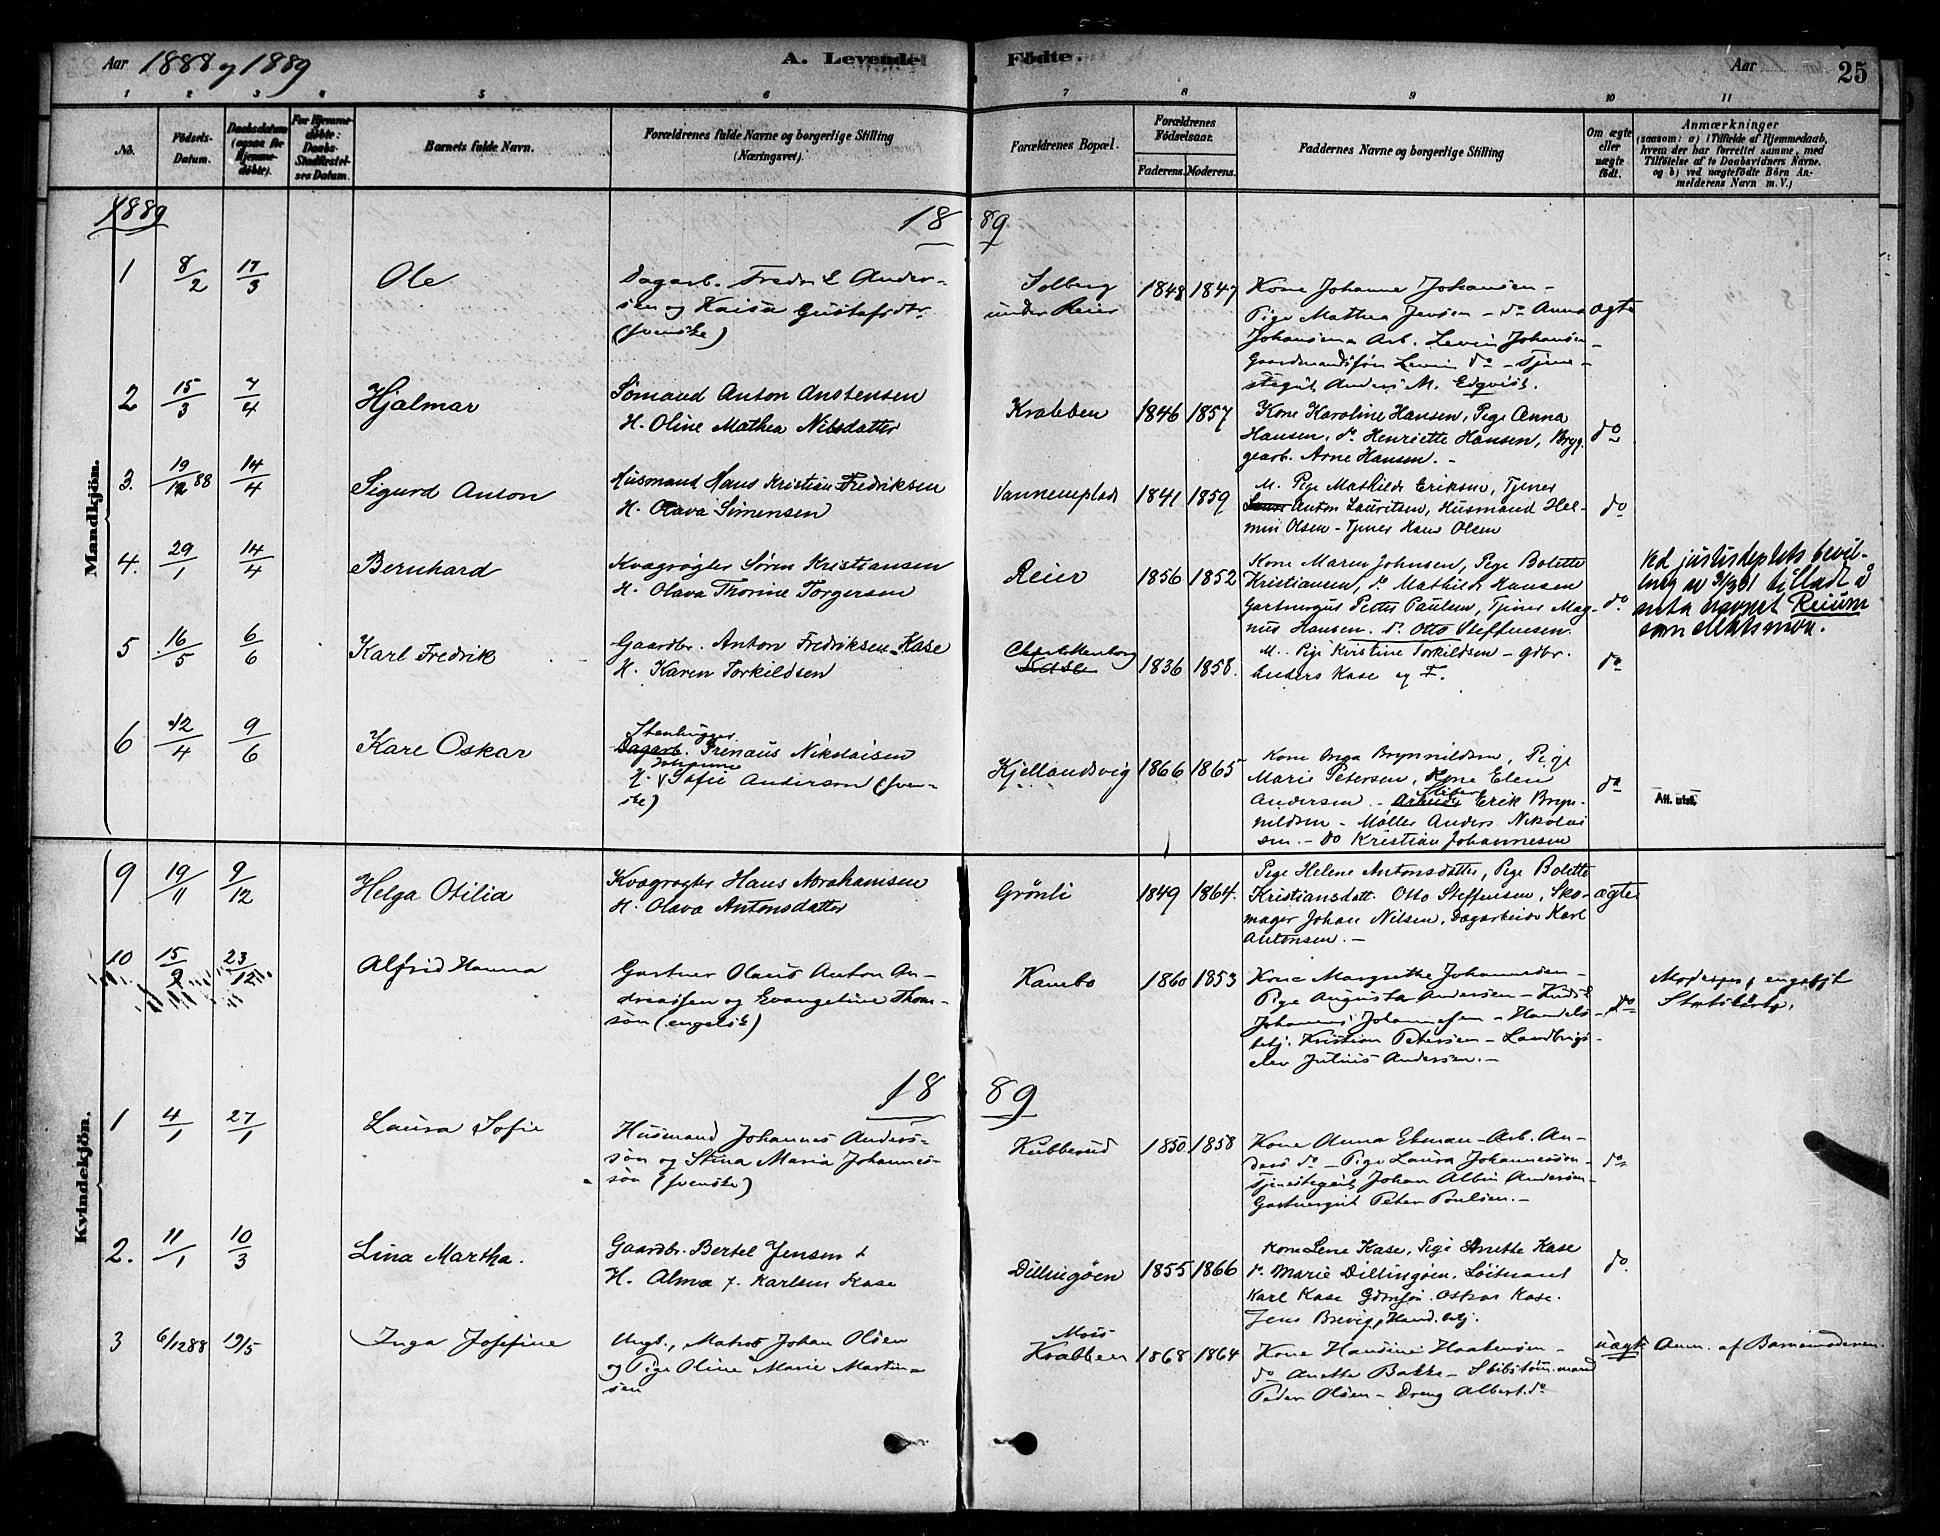 Aar 1888 og 1889
A. Levende Födte.
Aar 25
1 2 3 4 5 6 7 8 9 10 11
No.
Födsels-Datum.
Daabsdatum (ogsaa for Hjemme-döbte).
For Hjemme-döbte: Daabs-Stadfæstel-ses Datum.
Barnets fulde Navn.
Forældrenes fulde Navne og borgerlige Stilling (Næringsvei).
Forældrenes Bopæl.
Forældrenes Födselsaar.
Faderens. Moderens.
Faddernes Navne og borgerlige Stilling
Om ægte eller uægte födt.
Anmærkninger
(saasom: a) i Tilfælde af Hjemmedaab,
hvem der har forrettet samme, med
Tilföielse af to Daabsvidners Navne,
og b) ved uægtefödte Börn An-
melderens Navn m. V.)
Mandkjön.
1889
18 89
1 8/2 17/3 Ole
Dagarb. Fredrik Anders-
sen og Kaisa Gustafsdtr.
(svenske)
Solberg
under Reier
1848 1847
Kone Johanne Johansen -
Pige Mathea Jensen - do Anna
Johansen Arb. Levin Johansen -
Gaardmandssøn Levin do - Tjene-
stegut Anders M. Edqvist.
ægte
2 15/3 7/4 Hjalmar
Sømand Anton Anstensen
H. Oline Mathea Nilsdatter
Krabben
1846 1857
Kone Karoline Hansen, Pige Anna
Hansen, do Henriette Hansen, Bryg-
gearb. Arne Hansen. -
do
3. 19/12 88 14/4 Sigurd Anton
Husmand Hans Kristian Fredriksen
H. Olava Simensen
Vannemplads
1841 1859
M. Pige Mathilde Eriksen, Tjener
Anton Lauritsen, Husmand Hel-
min Olsen - Tjener Hans Olsen
do
4. 29/1 14/4 Bernhard
Kvægrøgter Søren Kristiansen
H. Olava Thorine Torgersen
Reier
1856 1852
Kone Maren Johnsen, Pige Bolette
Kristiansen, do Mathilde Hansen
Gartnergut Petter Paulsen, Tjener Mag-
nus Hansen. do Otto Steffensen.
do.
Ved justisdeptets bevil-
ling av 3/1 tilladt å
anta navnet Reium
som slektsnavn.
5 16/5 6/6 Karl Fredrik
Gaardbr. Anton Fredriksen Kase
H. Karen Torkildsen
Charlottenborg
1836 1858.
M. Pige Kristine Torkildsen - Gdbr.
Anders Kase og F.
do
6 12/4 9/6 Kare Oskar
Stenhugger
Dagarb. Irenæus Nikolaisen
Johanne
H. Sofie Anderson (sven-
ske)
Kjellandsvig
1866 1865
Kone Inga Brynnildsen, Pige
Marie Petersen, Kone Elen
Andersen - Erik Bryn-
nildsen - Møller Anders Nikolai
sen. - Do Kristian Johannesen
do
Att. utst.
Kvindekjön.
9 19/11 9/12 Helga Otilia
Kvægrøgter Hans Abrahamsen
H. Olava Antonsdatter
Grønli
1849 1864.
Pige Helene Antonsdatter, Pige Bolette
Kristiansdatt. Otto Steffensen, Sko-
mager Johan Nilsen, Dagarbeider Karl
Antonsen. -
ægte
10 15/9 23/12 Alfrid Hanna
Gartner Olaus Anton An-
dreassen og Evangeline Thom-
son (engelsk)
Kambo
1860 1853
Kone Margrethe Johannesen -
Pige Augusta Andersen -
Johannes Johannesen - Handels-
betj. Kristian Petersen - Landbrugs-
elev Julius Andersen. -
do
18 89
1 4/1 27/1 Laura Sofie
Husmand Johannes Anders-
søn og Stina Maria Johannes-
søn (svenske)
Kubberud
1850 1858
Kone Anna Ekman - Arb. An-
ders do - Pige Laura Johannesson -
Tjenestegut Johan Albin Andersen -
Gartnergut Peter Poulsen. -
do
2. 11/1 10/3 Lina Martha.
Gaardbr. Bertel Jensen &
H. Alma f. Karlsen Kase
Dillingøen
1855 1866
Kone Lene Kase, Pige Anette Kase
do. Marie Dillingøen. Løitnant
Karl Kase Gdmsøn. Oskar Kase.
Jens Brevig, Hand. betj.
do.
3 6/12 88 19/5 Inga Josefine
Ungk., Matros Johan Olsen
og Pige Oline Marie Martin-
sen
Moss
Krabben
1868 1864
Kone Handine Haakensen -
do Anette Bakke - Skibstømmermand
Peder Olsen - Dreng Albert do
uægte
Anm. af Barnemoderen.